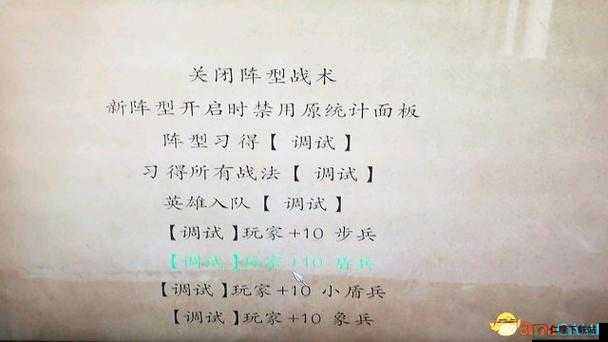 关闭阵型战术
新阵型开启时禁用原统计面板
阵型习得【 调试 】
习得所有战法【 调试 】
英雄入队【 调试 】
【调试】玩家+10 步兵
【调试】玩家+10 盾兵
【调试】玩家+10 小盾兵
【调试】玩家+10 象兵
下载站